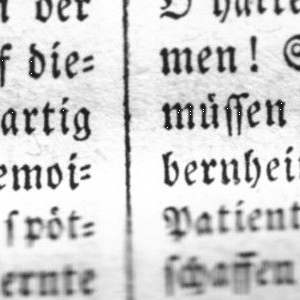 der
die=
artig
emoi=
spöt=
ernte
men!
müſſen
bernhei
Patient
ſchaffen